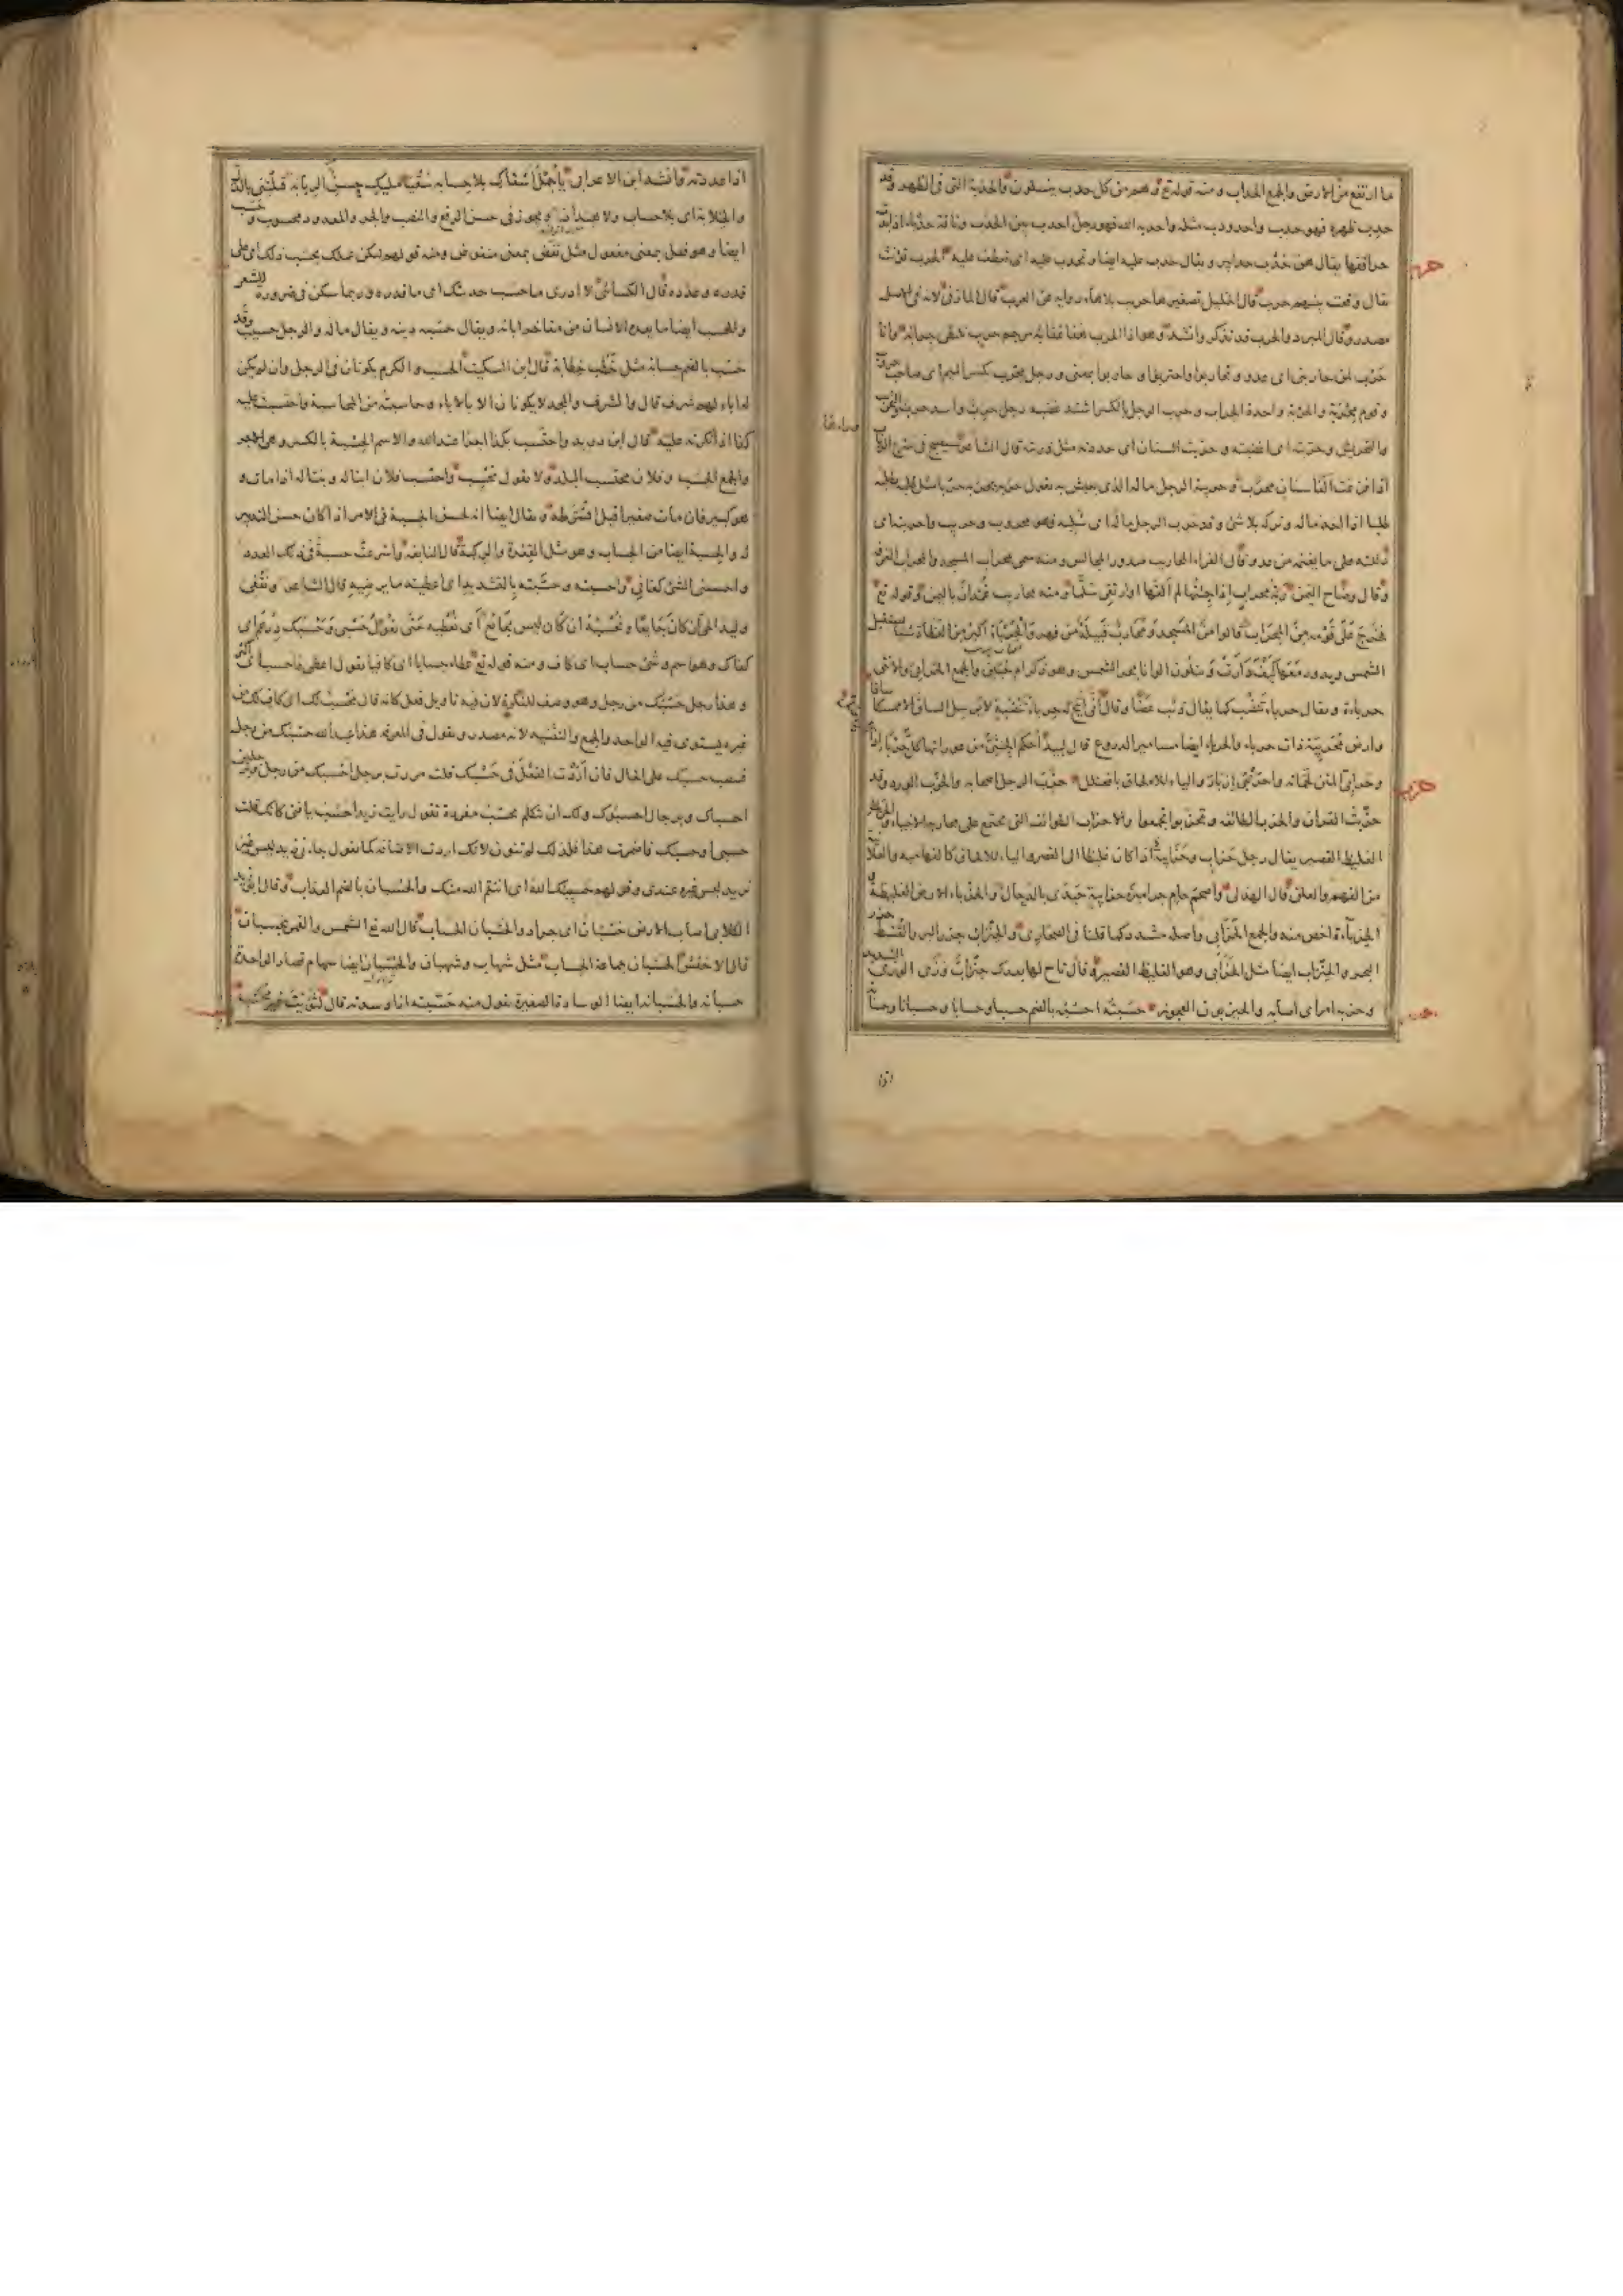 ما ارتفع من الارض والجمع الحداب ومنه قوله تع وهم من كل حدب ينسلون والحدبة التى فى الظهر وقد
حدب ظهره فهو حدب واحدودب مثله واحدبه الله فهو رجل احدب بين الحدب وناقة حدباء اذا بدت
حراقفها يقال هن حدب حدابير ويقال حدب عليه ايضا وتحدب عليه اى تعطف عليه الحرب تؤنث
يقال وقعت بينهم حرب قال الخليل تصغيرها حريب بلا هاء رواية عن العرب قال المازنى لانه فى الاصل
مصدر وقال المبرد والحرب قد تذكر وانشد وهو اذا الحرب هفا عقابه مرجم حرب تلتقى حرابه وانا
حرب لمن حاربنى اى عدو وتحاربوا واحتربوا وحاربوا بمعنى ورجل محرب بكسر الميم اى صاحب حروب
وقوم محربة والحربة واحدة الحراب وحرب الرجل بالكسر اشتد غضبه ورجل حرب واسد حرب والتحريب
والتحريش وحربته اى اغضبته وحربت السنان اى حددته مثل ذربته قال الشاعر سيصبح فى سرح الرباب
حريبة الرجل ماله الذى يعيش به تقول حربه يحربه حربا مثل طلبه يطلبه
طلبا اذا اخذ ماله وتركه بلا شئ وقد حرب الرجل ماله اى سلبه فهو محروب وحريب واحربته اى
دللته على ما يغنمه من عدو وقال الفراء المحاريب صدور المجالس ومنه سمى محراب المسجد والمحراب الغرفة
وقال وضاح اليمن ربة محراب اذا جئتها لم القها او ارتقى سلما ومنه محاريب غمدان باليمن وقوله تع
فخرج على قومه من المحراب قالوا من المسجد ومحارب قبيلة من فهر والحرباء اكبر من العظاءة شيئا يستقبل
الشمس ويدور معها كيف دارت ويتلون الوانا بحر الشمس وهو ذكر ام حبين والجمع الحرابى والانثى
حرباءة ويقال حرباء تنضب كما يقال ذئب غضا وقال انى اتيح له حرباء تنضبة لا يرسل الساق الا ممسكا ساقا
وارض محربئة ذات حرباء والحرباء ايضا مسامير الدروع قال لبيد احكم الجنثى من عوراتها كل حرباء اذا
وحرابى المتن لحماته واحرنبى ازبأر والياء للالحاق بافعنلل حزب الرجل اصحابه والحزب الورد وقد
حزبت القرآن والحزب الطائفة وتحزبوا تجمعوا والاحزاب الطوائف التى تجتمع على محاربة الانبياء
الغليظ القصير يقال رجل حزاب وحزابية اذا كان غليظا الى القصر والياء للالحاق كالفهامية والعلانية
من الفهم والعلن قال الهذلى واصحم حام جراميزه حزابية حيدى بالدحال والحزباء الارض الغليظة
الحزباءة اخص منه والجمع الحزابى واصله مشدد كما قلنا فى الصحارى والحنزاب جزر البر والقسط جزر
البحر والحنزاب ايضا مثل الحزابى وهو الغليظ القصير قال تاح لها بعدك حنزاب وزى
وحزبه امر اى اصابه والحيزبون العجوز حسبته احسبه بالضم حسبا وحسابا وحسبانا وحسابة
اذا عددته وانشد ابن الاعرابى يا جمل اسقاك بلا حسابه سقيا مليك حسن الربابه قتلتنى بالدل
والخلابة اى بلا حساب ولا هنداز ويجوز فى حسن الرفع والنصب والجر والمعدود محسوب وحسب
ايضا وهو فعل بمعنى مفعول مثل نفض بمعنى منفوض ومنه قولهم ليكن عملك بحسب ذلك اى على
قدره وعدده قال الكسائى لا ادرى ما حسب حديثك اى ما قدره وربما سكن فى ضرورة الشعر
والحسب ايضا ما يعده الانسان من مفاخر ابائه ويقال حسبه دينه ويقال ماله والرجل حسيب وقد
حسب بالضم حسابة مثل خطب خطابة قال ابن السكيت الحسب والكرم يكونان فى الرجل وان لم يكن
له اباء لهم شرف قال والشرف والمجد لا يكونان الا بالاباء وحاسبته من المحاسبة واحتسبت عليه
كذا اذا انكرته عليه قال ابن دريد واحتسب بكذا اجرا عند الله والاسم الحسبة بالكسر وهى الاجر
والجمع الحسب وفلان محتسب البلد ولا تقول محسب واحتسب فلان ابنا له وبنتا له اذا مات وهو
كبير فان مات صغيرا قيل افترطه ويقال ايضا انه لحسن الحسبة فى الامر اذا كان حسن التدبير
له والحسبة ايضا من الحساب وهو مثل القعدة والركبة قال النابغة واسرعت حسبة فى ذلك العدد
واحسبنى الشئ كفانى واحسبته وحسبته بالتشديد اى اعطيته ما يرضيه قال الشاعر ونقفى
وليد الحى ان كان جايعا ونحسبه ان كان ليس بجايع اى نعطيه حتى يقول حسبى وحسبك درهم اى
كفاك وهو اسم وشئ حساب اى كاف ومنه قوله تع عطاء حسابا اى كافيا
وهذا رجل حسبك من رجل وهو وصف للنكرة لان فيه تاويل فعل كانه قال محسب لك اى كاف لك من
غيره يستوى فيه الواحد والجمع والتثنية لانه مصدر وتقول فى المعرفة هذا عبد الله حسبك من رجل
فتنصب حسبك على الحال فان اردت الفعل فى حسبك قلت مررت برجل احسبك من رجل وبرجلين
احسباك وبرجال احسبوك ولك ان تتكلم بحسب مفردة تقول رايت زيدا حسب يا فتى كانك قلت
حسبى او حسبك فاضمرت هذا فلذلك لم تنون لانك اردت الاضافة كما تقول جاءنى زيد ليس غير
تريد ليس غيره عندى وقولهم حسيبك الله اى انتقم الله منك والحسبان بالضم العذاب وقال ابو زياد
الكلابى اصاب الارض حسبان اى جراد والحسبان الحساب قال الله تع الشمس والقمر بحسبان
قال الاخفش الحسبان جماعة الحساب مثل شهاب وشهبان والحسبان ايضا سهام قصار الواحدة
حسبانة والحسبانة ايضا الوسادة الصغيرة تقول منه حسبته اذا وسدته قال